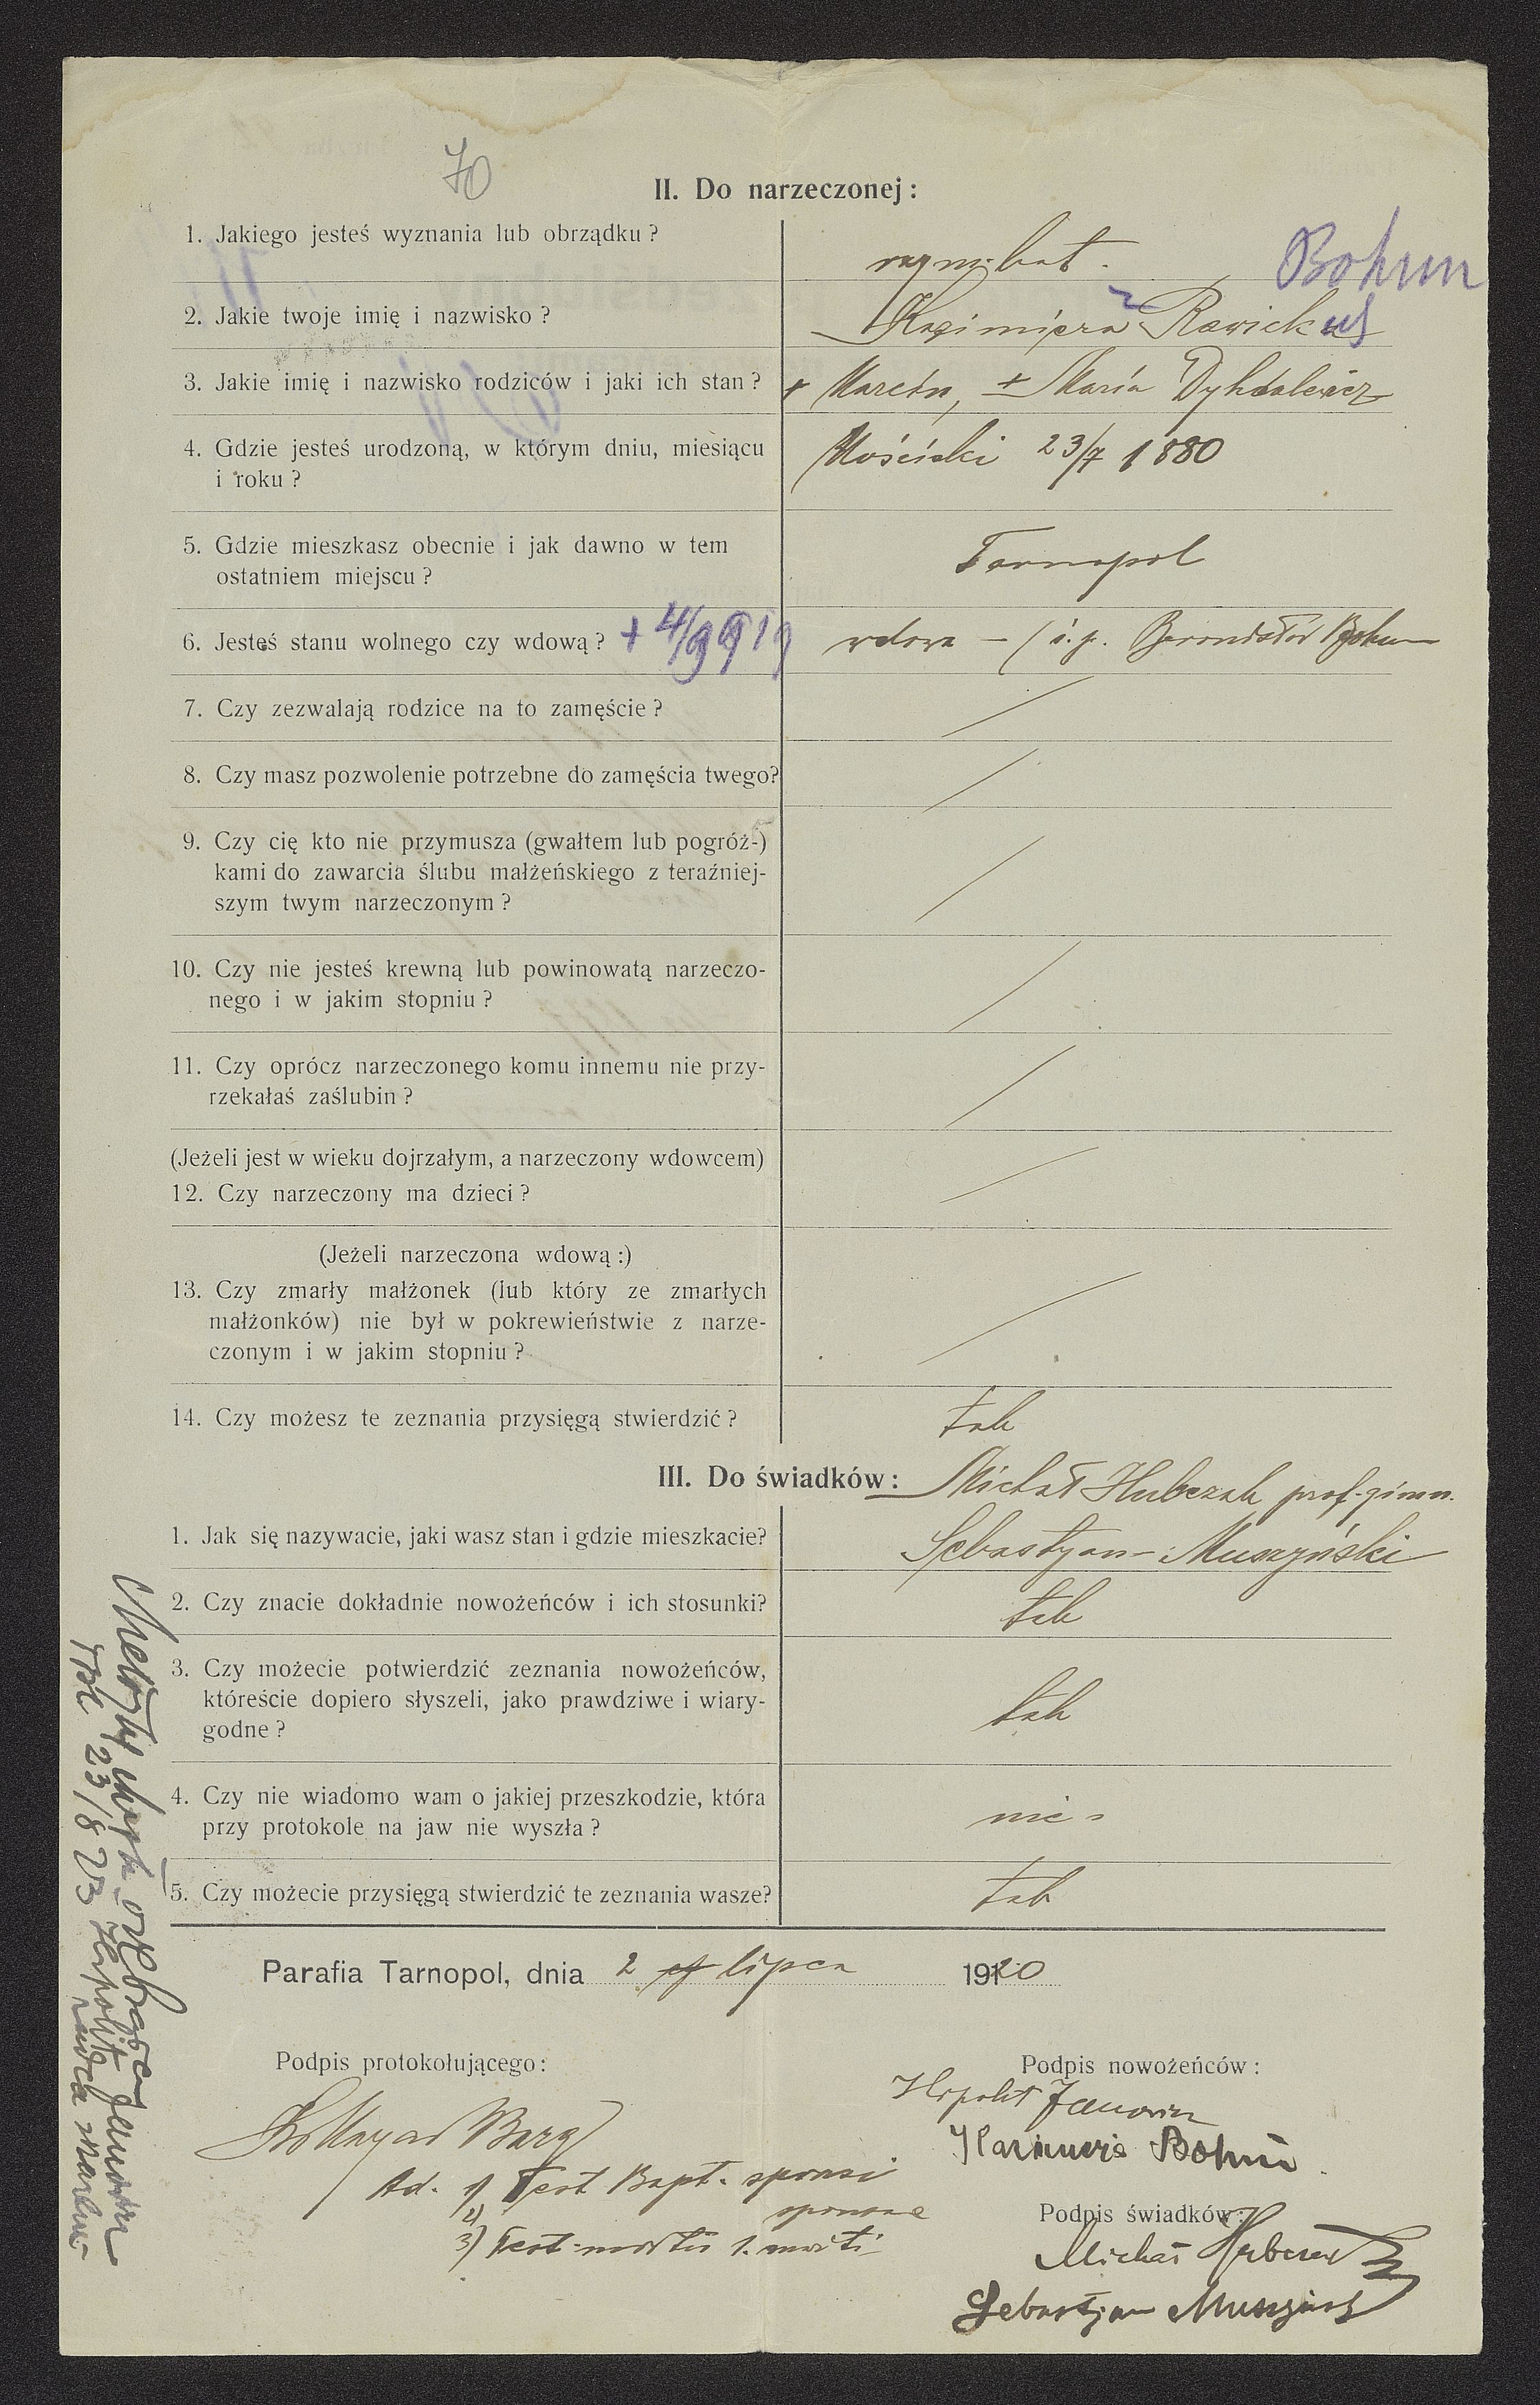 70
II. Do narzeczonej:
1. Jakiego jesteś wyznania lub obrządku?
rzym. kat.
Bohun
2. Jakie twoje imię i nazwisko?
Kazimiera z Rawick
3. Jakie imię i nazwisko rodziców i jaki ich stan?
+ Marcin, + Maria Dyhdalewicz
4. Gdzie jesteś urodzoną, w którym dniu, miesiącu
i roku?
Mościski 23/7 1880
5. Gdzie mieszkasz obecnie i jak dawno w tem
ostatniem miejscu?
Tarnopol
6. Jesteś stanu wolnego czy wdową?
+ 4/9 919
wdowa – (ś. p. Bronisław Bohun
7. Czy zezwalają rodzice na to zamęście?
8. Czy masz pozwolenie potrzebne do zamęścia twego?
9. Czy cię kto nie przymusza (gwałtem lub pogróż-)
kami do zawarcia ślubu małżeńskiego z teraźniej-
szym twym narzeczonym?
10. Czy nie jesteś krewną lub powinowatą narzeczo-
nego i w jakim stopniu?
11. Czy oprócz narzeczonego komu innemu nie przy-
rzekałaś zaślubin?
(Jeżeli jest w wieku dojrzałym, a narzeczony wdowcem)
12. Czy narzeczony ma dzieci?
(Jeżeli narzeczona wdową:)
13. Czy zmarły małżonek (lub który ze zmarłych
małżonków) nie był w pokrewieństwie z narze-
czonym i w jakim stopniu?
14. Czy możesz te zeznania przysięgą stwierdzić?
tak
III. Do świadków:
Michał Hubczak prof. gimn.
1. Jak się nazywacie, jaki wasz stan i gdzie mieszkacie?
Sebastyan Muszyński
2. Czy znacie dokładnie nowożeńców i ich stosunki?
tak
3. Czy możecie potwierdzić zeznania nowożeńców,
któreście dopiero słyszeli, jako prawdziwe i wiary-
godne?
tak
4. Czy nie wiadomo wam o jakiej przeszkodzie, która
przy protokole na jaw nie wyszła?
nie
5. Czy możecie przysięgą stwierdzić te zeznania wasze?
tak
Parafia Tarnopol, dnia 2 lipca 1920
Podpis protokołującego:
Podpis nowożeńców:
Hipolit Janowicz
Kazimiera Bohun
Ad. 1) Test Bapt. sponsi
2) sponsae
3) Test. mortis 1. mariti
Podpis świadków:
Michał Hubczak
Sebastjan Muszyński
Metrykę odebrałem
Tpl 23/8 23 Hipolit Janowicz